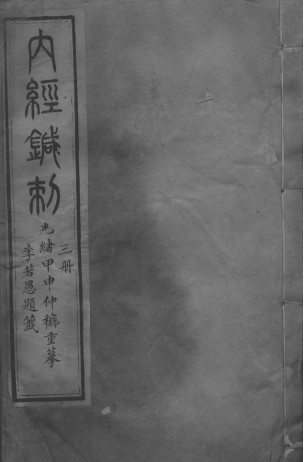 內經鍼刺
三册
光緒甲申仲秋重摹
李若愚題籤